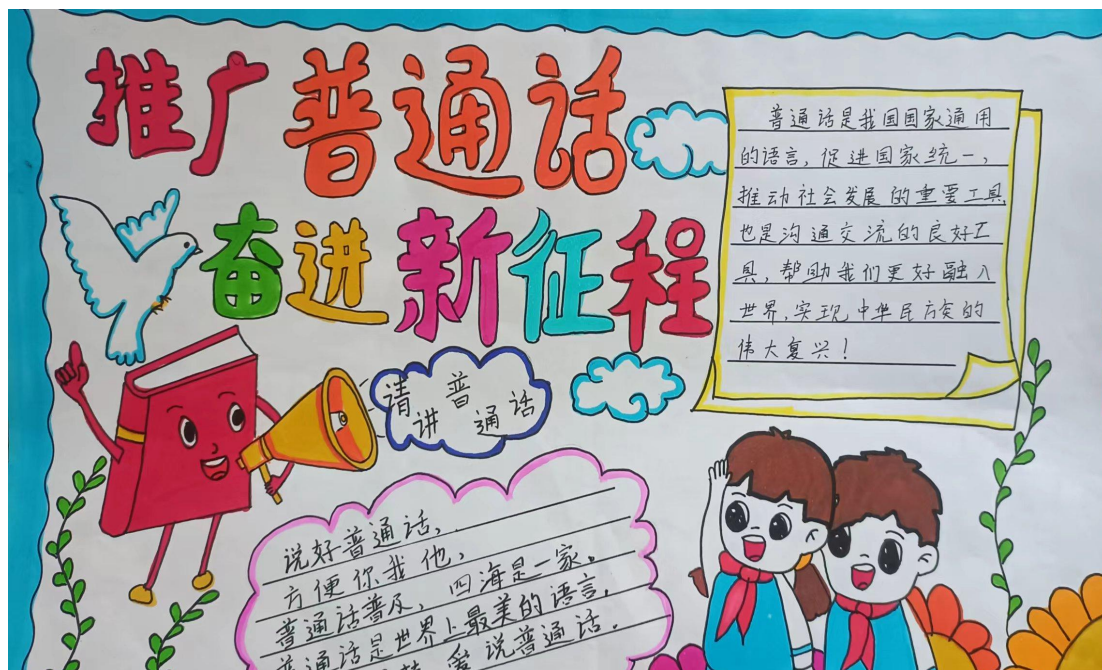 推广普通话
奋进新征程
普通话是我国国家通用
的语言，促进国家统一，
推动社会发展的重要工具，
也是沟通交流的良好工
具，帮助我们更好融入
世界，实现中华民族的
伟大复兴！
请讲普通话
说好普通话，
方便你我他，
普通话普及，四海是一家。
普通话是世界上最美的语言，
爱说普通话。